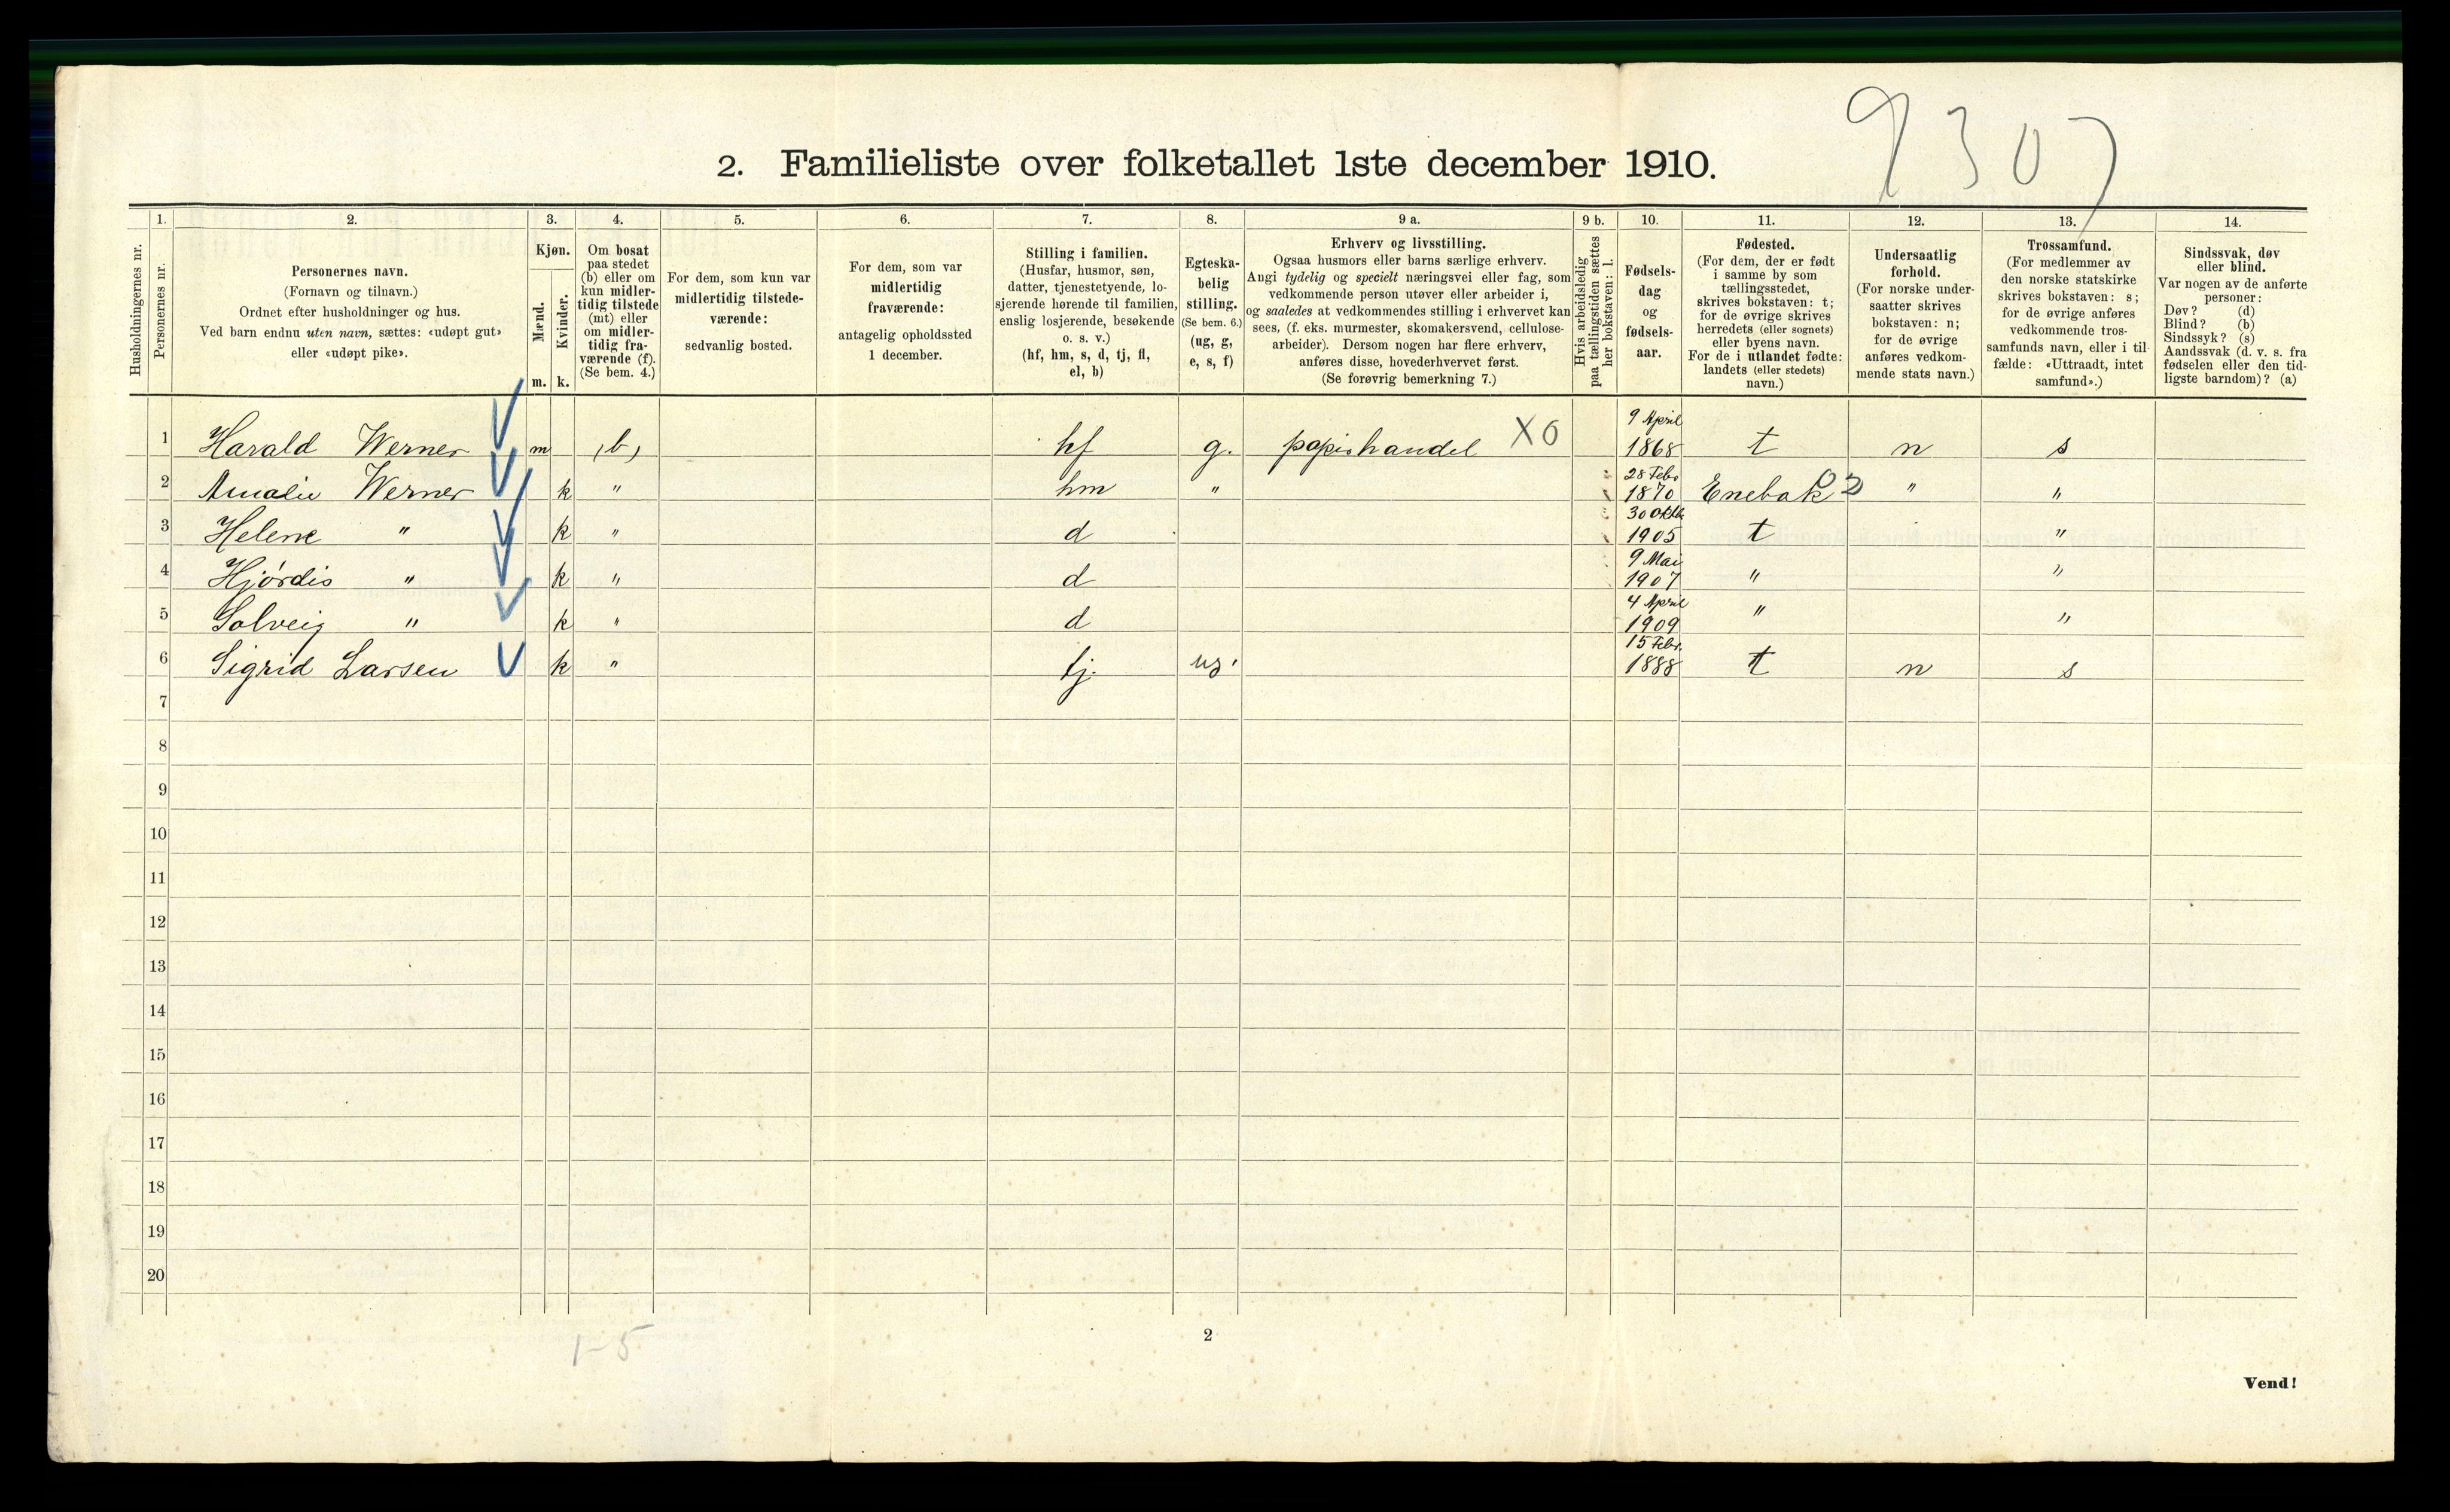 9307
2. Familieliste over folketallet 1ste december 1910.
Husholdningernes nr.
1.
Personernes nr.
2.
Personernes navn.
(Fornavn og tilnavn.)
Ordnet efter husholdninger og hus.
Ved barn endnu uten navn, sættes: «udøpt gut»
eller «udøpt pike».
3.
Kjøn.
Mænd.
m.
Kvinder.
k.
4.
Om bosat
paa stedet
(b) eller om
kun midler-
tidig tilstede
(mt) eller
om midler-
tidig fra-
værende (f).
(Se bem. 4.)
5.
For dem, som kun var
midlertidig tilstede-
værende:
sedvanlig bosted.
6.
For dem, som var
midlertidig
fraværende:
antagelig opholdssted
1 december.
7.
Stilling i familien.
(Husfar, husmor, søn,
datter, tjenestetyende, lo-
sjerende hørende til familien,
enslig losjerende, besøkende
o. s. v.)
(hf, hm, s, d, tj, fl,
el, b)
8.
Egteska-
belig
stilling.
(Se bem. 6.)
(ug, g,
e, s, f)
9 a.
Erhverv og livsstilling.
Ogsaa husmors eller barns særlige erhverv.
Angi tydelig og specielt næringsvei eller fag, som
vedkommende person utøver eller arbeider i,
og saaledes at vedkommendes stilling i erhvervet kan
sees, (f. eks. murmester, skomakersvend, cellulose-
arbeider). Dersom nogen har flere erhverv,
anføres disse, hovederhvervet først.
(Se forøvrig bemerkning 7.)
9 b.
Hvis arbeidsledig
paa tællingstiden sættes
her bokstaven: l.
10.
Fødsels-
dag
og
fødsels-
aar.
11.
Fødested.
(For dem, der er født
i samme by som
tællingsstedet,
skrives bokstaven: t;
for de øvrige skrives
herredets (eller sognets)
eller byens navn.
For de i utlandet fødte:
landets (eller stedets)
navn.)
12.
Undersaatlig
forhold.
(For norske under-
saatter skrives
bokstaven: n;
for de øvrige
anføres vedkom-
mende stats navn.)
13.
Trossamfund.
(For medlemmer av
den norske statskirke
skrives bokstaven: s;
for de øvrige anføres
vedkommende tros-
samfunds navn, eller i til-
fælde: «Uttraadt, intet
samfund».)
14.
Sindssvak, døv
eller blind.
Var nogen av de anførte
personer:
Døv? (d)
Blind? (b)
Sindssyk? (s)
Aandssvak (d. v. s. fra
fødselen eller den tid-
ligste barndom)? (a)
1 Harald Werner m (b) hf g. papirhandel X0 9 April 1868 t n s
2 Amalie Werner k " hm " 28 Febr 1870 Enebak " "
3 Helene " k " d 30 Oktb 1905 t "
4 Hjørdis " k " d 9 Mai 1907 " "
5 Solveig " k " d 4 April 1909 " "
6 Sigrid Larsen k " tj. ug. 15 Febr. 1888 t n s
7
8
9
10
11
12
13
14
15
16
17
18
19
20
1-5
2
Vend!